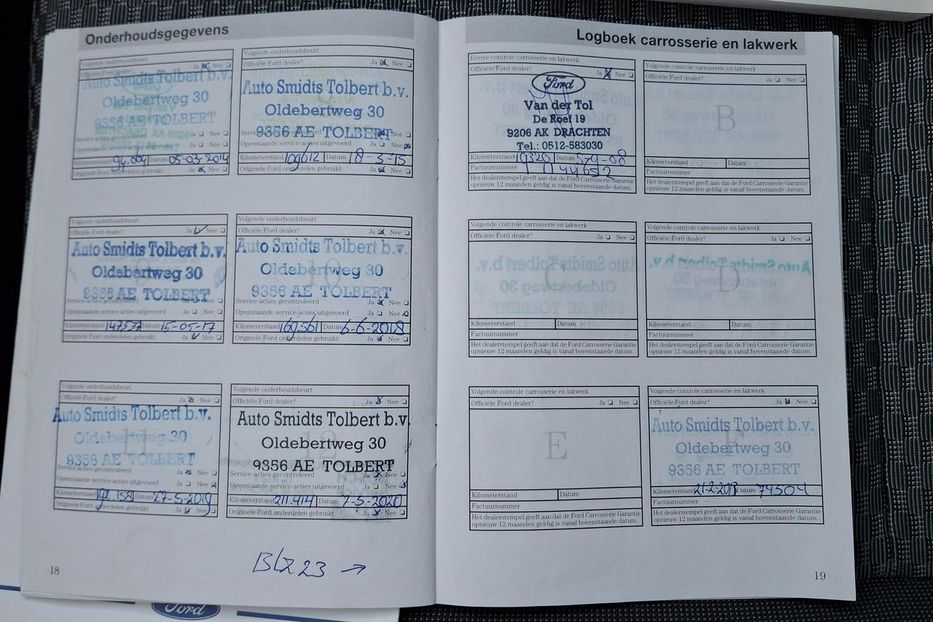 Onderhoudsgegevens
Volgende onderhoudsbeurt
Officiële Ford dealer? Ja Nee
Auto Smidts Tolbert b.v.
Oldebertweg 30
9356 AE TOLBERT
Ja Nee
Kilometerstand Datum 05-03-2014
Ja Nee
Volgende onderhoudsbeurt
Officiële Ford dealer? Ja Nee
Auto Smidts Tolbert b.v.
Oldebertweg 30
9356 AE TOLBERT
Openstaande service-acties uitgevoerd Ja Nee
Kilometerstand 109612 Datum 18-3-15
Originele Ford onderdelen gebruikt Ja Nee
Volgende onderhoudsbeurt
Officiële Ford dealer? Ja Nee
Auto Smidts Tolbert b.v.
Oldebertweg 30
9356 AE TOLBERT
Openstaande service-acties uitgevoerd Ja Nee
Kilometerstand 147537 Datum 15-05-17
Originele Ford onderdelen gebruikt Ja Nee
Volgende onderhoudsbeurt
Officiële Ford dealer? Ja Nee
10
Auto Smidts Tolbert b.v.
Oldebertweg 30
9356 AE TOLBERT
Service-acties gecontroleerd Ja Nee
Openstaande service-acties uitgevoerd Ja Nee
Kilometerstand 169361 Datum 6-6-2018
Originele Ford onderdelen gebruikt Ja Nee
Volgende onderhoudsbeurt
Officiële Ford dealer? Ja Nee
11
Auto Smidts Tolbert b.v.
Oldebertweg 30
9356 AE TOLBERT
Service-acties gecontroleerd Ja Nee
Openstaande service-acties uitgevoerd Ja Nee
Kilometerstand Datum 27-5-2019
Originele Ford onderdelen gebruikt Ja Nee
Volgende onderhoudsbeurt
Officiële Ford dealer? Ja Nee
12
Auto Smidts Tolbert b.v.
Oldebertweg 30
9356 AE TOLBERT
Service-acties gecontroleerd Ja Nee
Openstaande service-acties uitgevoerd Ja Nee
Kilometerstand 211.414 Datum 7-5-2020
Originele Ford onderdelen gebruikt Ja Nee
Blz 23 →
18
Ford
Logboek carrosserie en lakwerk
Eerste controle carrosserie en lakwerk
Officiële Ford dealer? Ja Nee
Ford
Van der Tol
De Roef 19
9206 AK DRACHTEN
Tel.: 0512-583030
Kilometerstand 10320 Datum
Factuurnummer 1144652
Het dealerstempel geeft aan dat de Ford Carrosserie Garantie
opnieuw 12 maanden geldig is vanaf bovenstaande datum.
Volgende controle carrosserie en lakwerk
Officiële Ford dealer? Ja Nee
B
Kilometerstand Datum
Factuurnummer
Het dealerstempel geeft aan dat de Ford Carrosserie Garantie
opnieuw 12 maanden geldig is vanaf bovenstaande datum.
Volgende controle carrosserie en lakwerk
Officiële Ford dealer? Ja Nee
Kilometerstand Datum
Factuurnummer
Het dealerstempel geeft aan dat de Ford Carrosserie Garantie
opnieuw 12 maanden geldig is vanaf bovenstaande datum.
Volgende controle carrosserie en lakwerk
Officiële Ford dealer? Ja Nee
D
Kilometerstand Datum
Factuurnummer
Het dealerstempel geeft aan dat de Ford Carrosserie Garantie
opnieuw 12 maanden geldig is vanaf bovenstaande datum.
Volgende controle carrosserie en lakwerk
Officiële Ford dealer? Ja Nee
E
Kilometerstand Datum
Factuurnummer
Het dealerstempel geeft aan dat de Ford Carrosserie Garantie
opnieuw 12 maanden geldig is vanaf bovenstaande datum.
Volgende controle carrosserie en lakwerk
Officiële Ford dealer? Ja Nee
F
Auto Smidts Tolbert b.v.
Oldebertweg 30
9356 AE TOLBERT
Kilometerstand 74504
Factuurnummer
Het dealerstempel geeft aan dat de Ford Carrosserie Garantie
opnieuw 12 maanden geldig is vanaf bovenstaande datum.
19